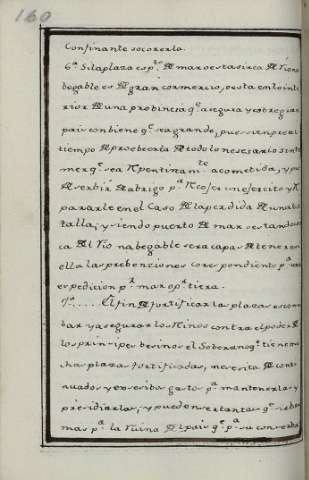 160
Confinante socorerla.
6ª Si la plaza es pto de mar o esta sirca de rio na
begable es de gran comersio, o esta en lo inte
rior de una probincia qe asegura y cubre gran
pais conbiene qe sea grande, pues sienpre al
tiempo de proeberla de todo lo nesesario si te
mer qe sea repentinamte acometida, y pue
de serbir de abrigo pa recoser un exersito y re
pararle en el caso de la perdida de una ba
talla; y siendo puerto de mar o estando ser
ca del rio nabegable sera capas de tener en
ella las prebensiones corespondiente pa una
expedision pr mar o pr tiera.
7ª .... El fin de fortificar las plasas es con
bar y asegurar los Reinos contra el poder de
los prinsipes besinos el Soberano qe tiene mu
chas plazas fortificadas, nesesita de conti
nuados y exsesibo gastos pa mantenerlas y
presidiarlas, y pueden ser tantas qe sirban
mas pa la ruina del pais qe pa su conserba